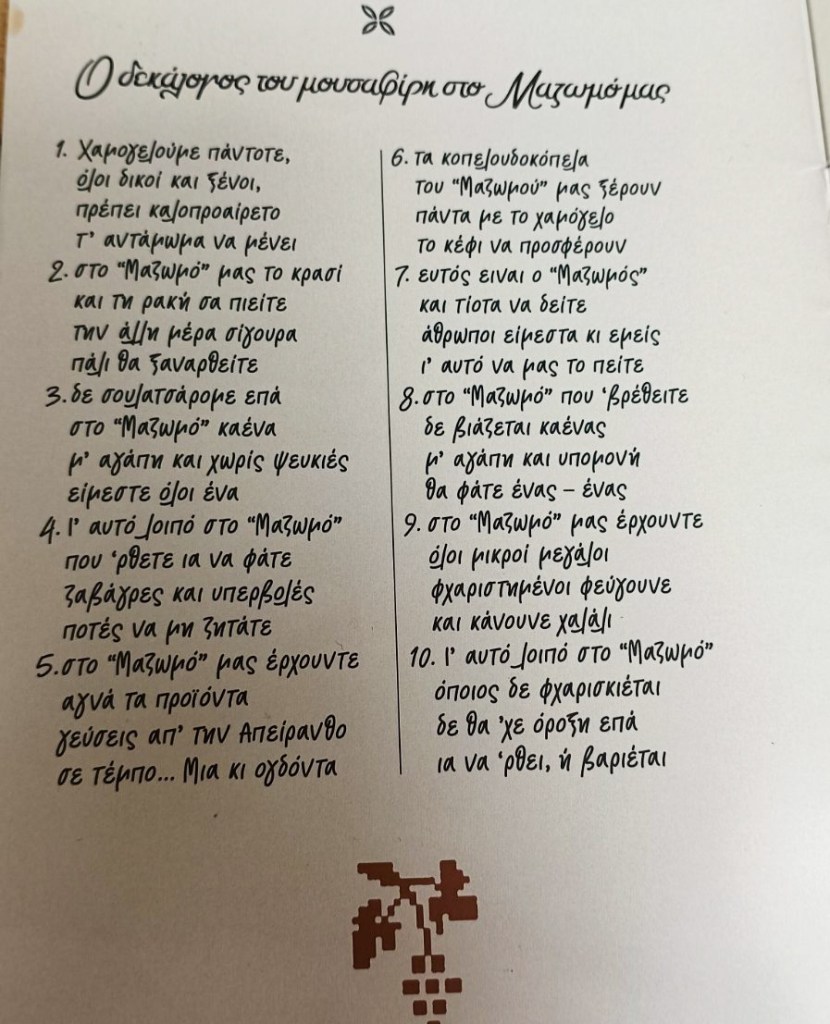 Ο δεκάλογος του μουσαφίρη στο Μαζωμό μας
1. Χαμογελούμε πάντοτε,
όλοι δικοί και ξένοι,
πρέπει καλοπροαίρετο
τ' αντάμωμα να μένει
2. στο "Μαζωμό" μας το κρασί
και τη ρακή σα πιείτε
την άλλη μέρα σίγουρα
πάλι θα ξαναρθείτε
3. δε σουλατσάρομε επά
στο "Μαζωμό" καένα
μ' αγάπη και χωρίς ψευκιές
είμεστε όλοι ένα
4. Ι' αυτό λοιπό στο "Μαζωμό"
που 'ρθετε ια να φάτε
ζαβάγρες και υπερβολές
ποτές να μη ζητάτε
5. στο "Μαζωμό" μας έρχουντε
αγνά τα προϊόντα
γεύσεις απ' την Απείρανθο
σε τέμπο... Μια κι ογδόντα
6. τα κοπελουδοκόπελα
του "Μαζωμού" μας ξέρουν
πάντα με το χαμόγελο
το κέφι να προσφέρουν
7. ευτός ειναι ο "Μαζωμός"
και τίοτα να δείτε
άθρωποι είμεστα κι εμείς
ι' αυτό να μας το πείτε
8. στο "Μαζωμό" που 'βρέθειτε
δε βιάζεται καένας
μ' αγάπη και υπομονή
θα φάτε ένας – ένας
9. στο "Μαζωμό" μας έρχουντε
όλοι μικροί μεγάλοι
φχαριστημένοι φεύγουνε
και κάνουνε χαλάλι
10. Ι' αυτό λοιπό στο "Μαζωμό"
όποιος δε φχαρισκιέται
δε θα 'χε όροξη επά
ια να 'ρθει, ή βαριέται